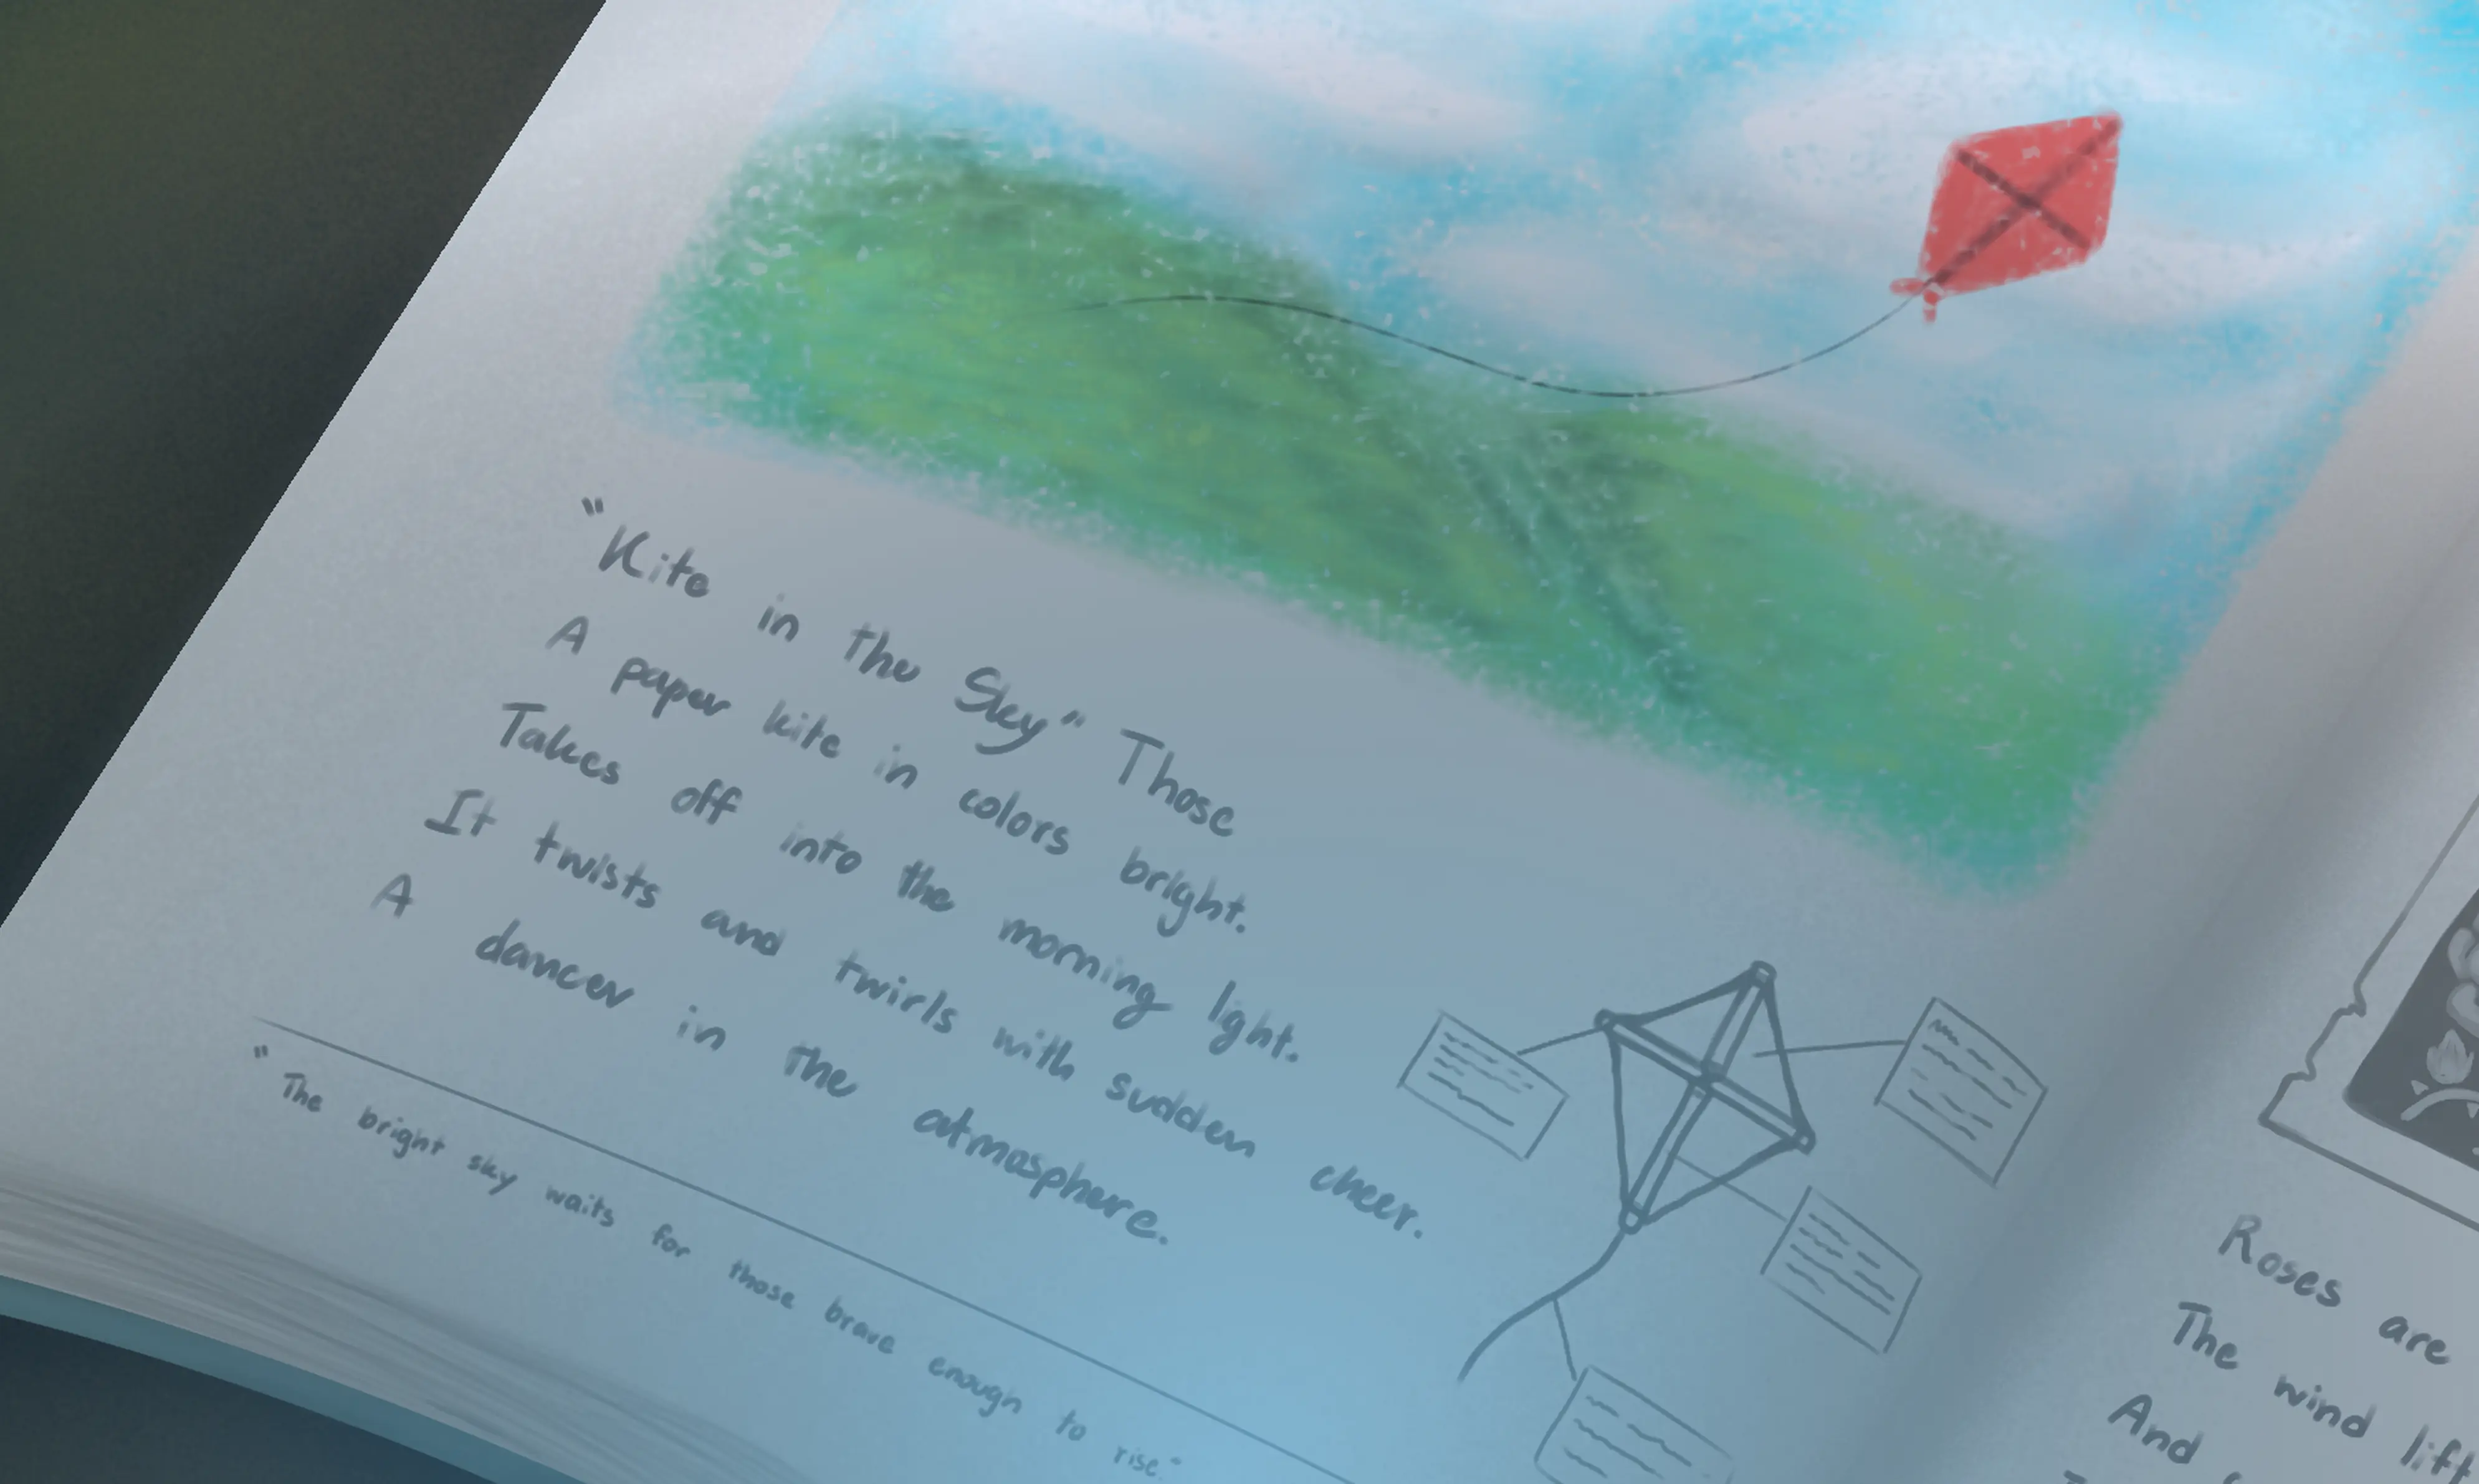 "Kite in the Sky" Those
A paper kite in colors bright.
Takes off into the morning light.
It twists and twirls with sudden cheer.
A dancer in the atmosphere.
"The bright sky waits for those brave enough to rise."
Roses are
The wind lift
And